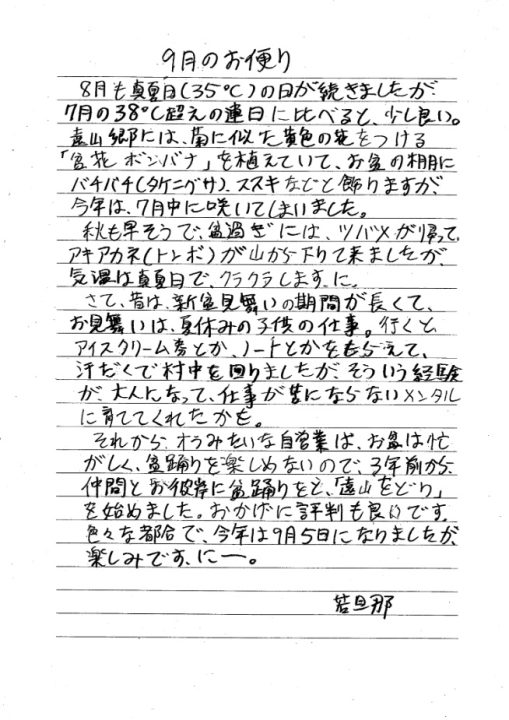 9月のお便り
8月も真夏日(35℃)の日が続きましたが、
7月の38℃超えの連日に比べると、少し良い。
遠山郷には、菊に似た黄色の花をつける
「盆花 ボンバナ」を植えていて、お盆の棚に
バチバチ(タケニグサ)、ススキなどと飾りますが、
今年は、7月中に咲いてしまいました。
秋も早そうで、盆過ぎには、ツバメが帰って、
アキアカネ(トンボ)が山から下りて来ましたが、
気温は真夏日で、クラクラします、に。
さて、昔は、新盆見舞いの期間が長くて、
お見舞いは、夏休みの子供の仕事。行くと、
アイスクリーム券とか、ノートとかをもらえて、
汗だくで村中を回りましたが、そういう経験
が、大人になって、仕事が苦にならないメンタル
に育ててくれたかも。
それから、オラみたいな自営業は、お盆は忙
がしく、盆踊りを楽しめないので、3年前から、
仲間とお彼岸に盆踊りをと、「遠山をどり」
を始めました。おかげに評判も良いです。
色々な都合で、今年は9月5日になりましたが、
楽しみです、にー。
若旦那